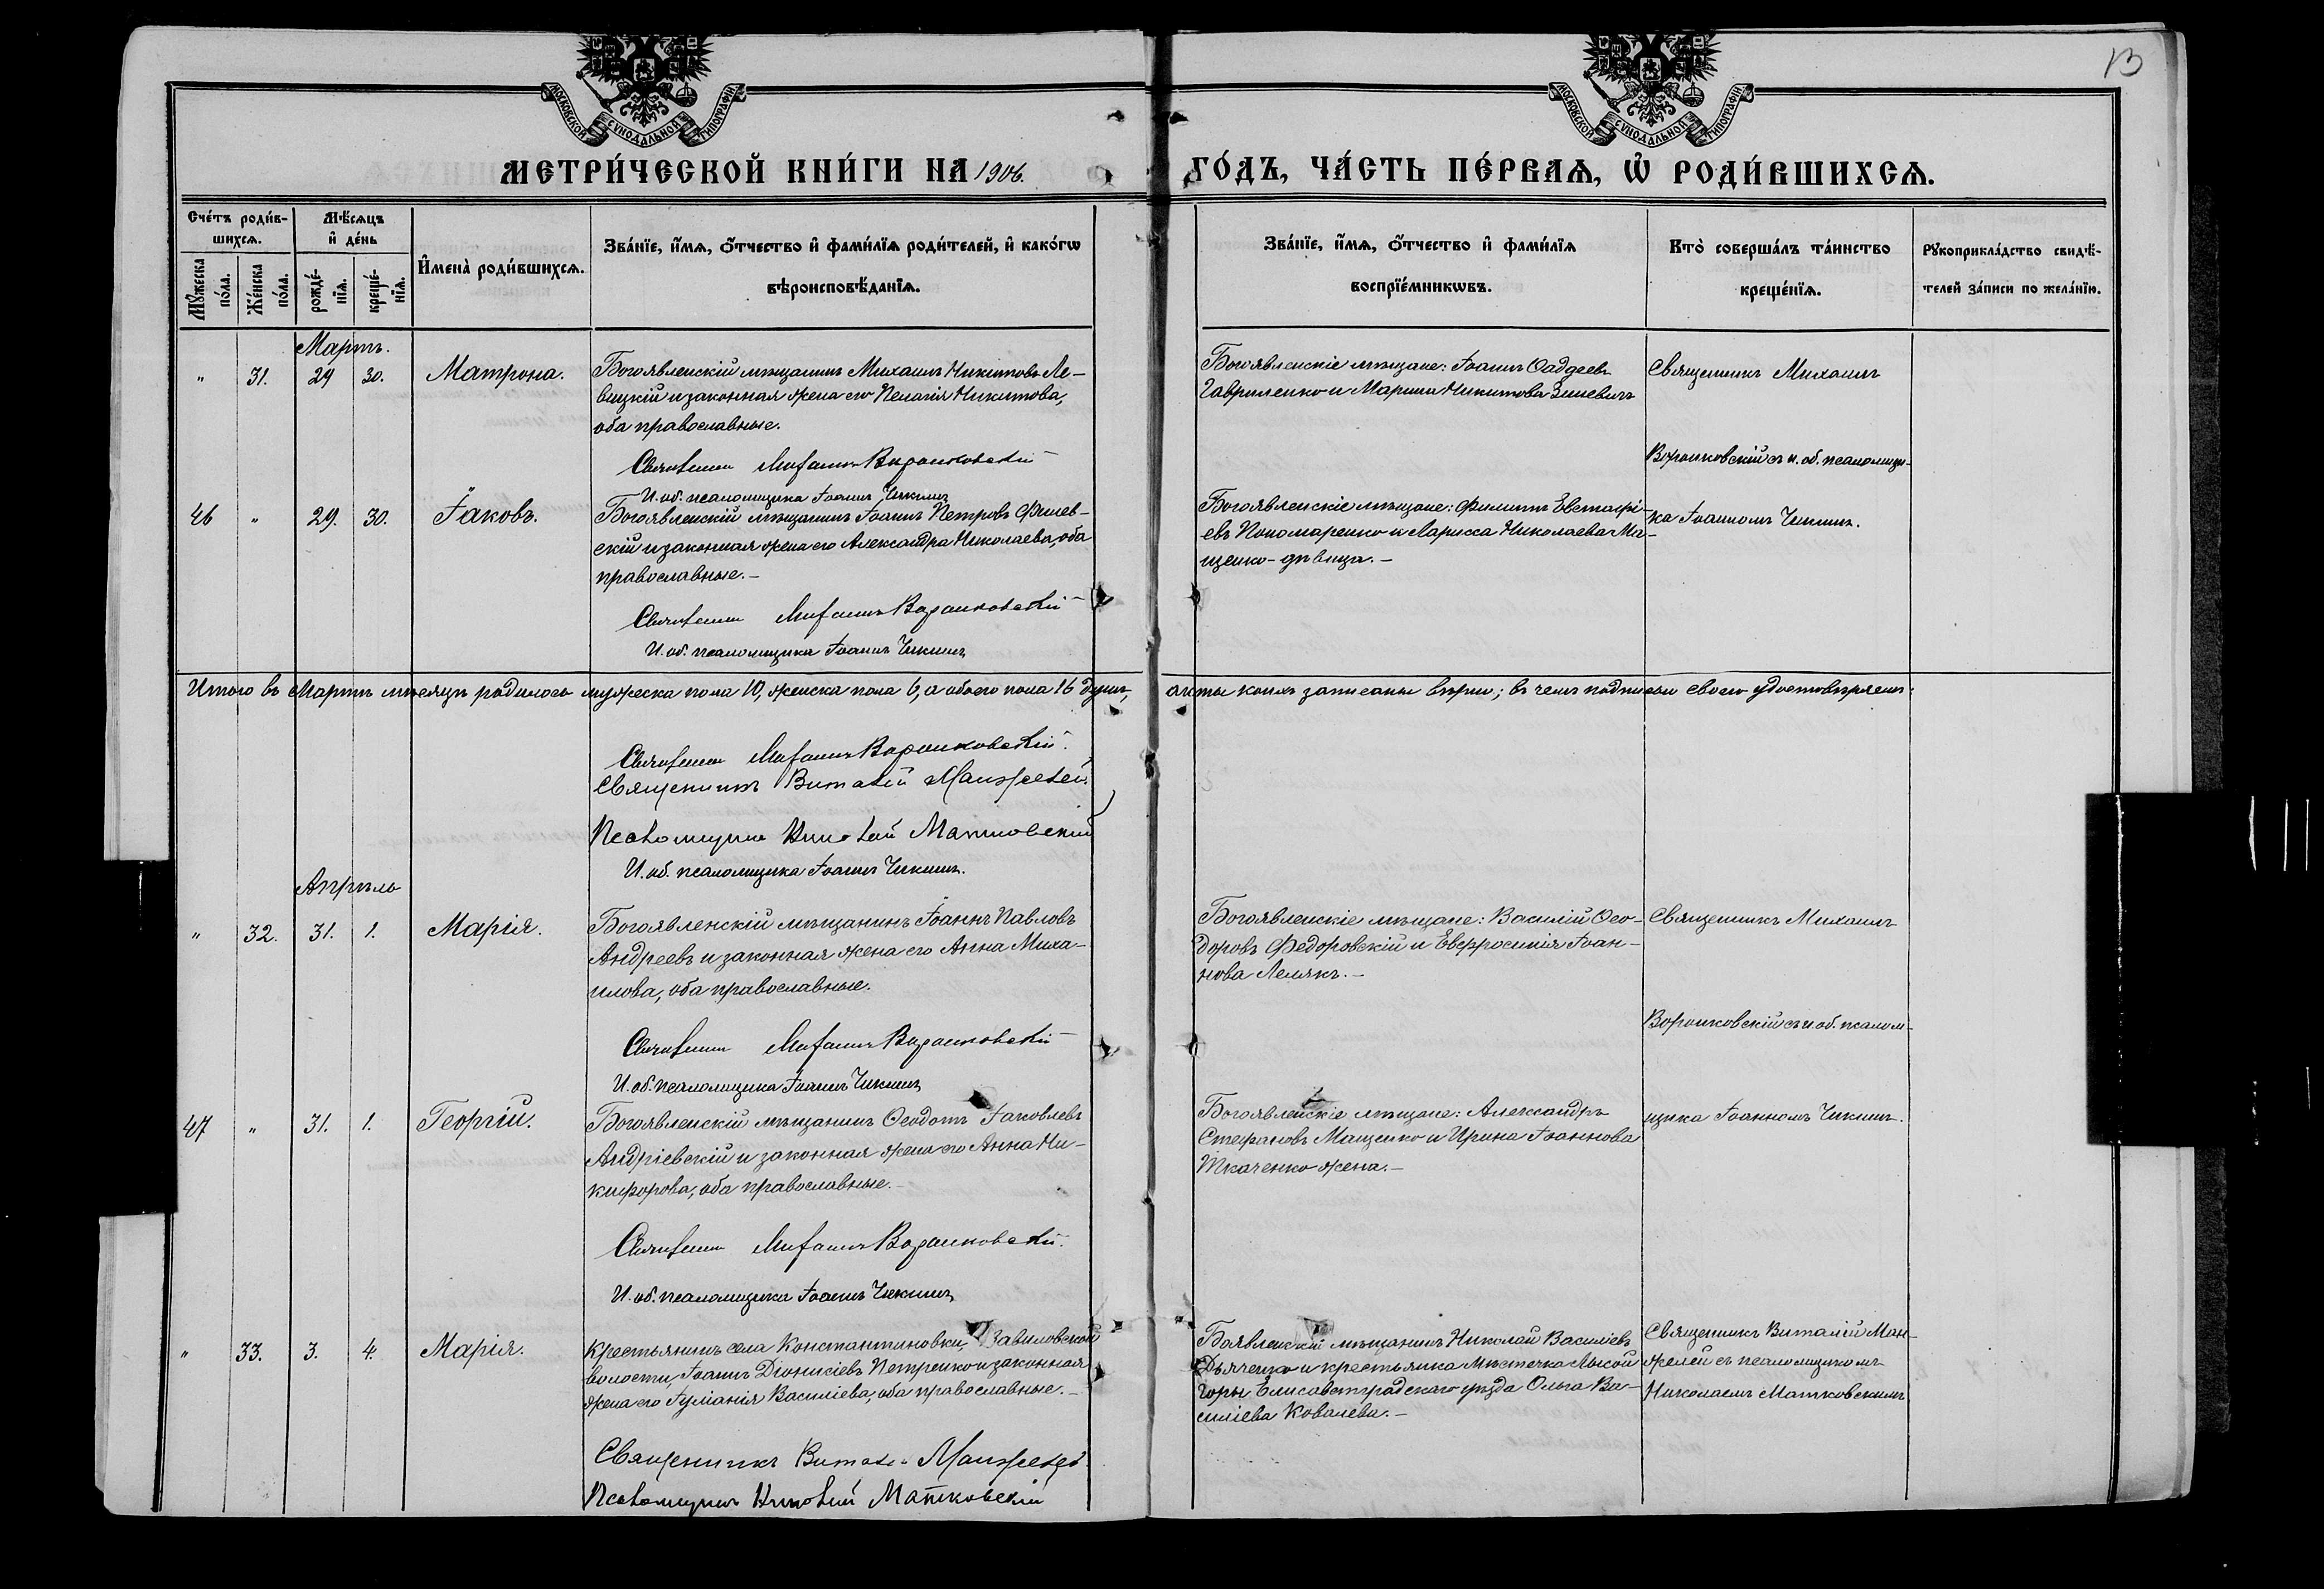 13
МОСКОВСКОЙ СѴНОДАЛЬНОЙ ТИПОГРАФІИ
МОСКОВСКОЙ СѴНОДАЛЬНОЙ ТИПОГРАФІИ
МЕТРИ́ЧЕСКОЙ КНИ́ГИ НА 1906. ГО́ДЪ, ЧА́СТЬ ПЕ́РВАѦ, Ѡ҆ РОДИ́ВШИХСѦ.
Сче́тъ роди́в-
шихсѧ.
Мꙋ́жеска по́ла.
Же́нска по́ла.
Мѣ́сѧцъ
и҆ де́нь
рожде́-
нїѧ.
креще́-
нїѧ.
И҆мена̀ роди́вшихсѧ.
Зва́нїе, и҆́мѧ, ѻ҆́тчество и҆ фами́лїѧ роди́телей, и҆ како́гѡ
вѣроисповѣ́данїѧ.
Зва́нїе, и҆́мѧ, ѻ҆́тчество и҆ фами́лїѧ
воспрїе́мникѡвъ.
Кто̀ соверша́лъ та́инство
креще́нїѧ.
Рꙋкоприкла́дство свидѣ́-
телей за́писи по жела́нїю.
Мартъ.
" 31. 29 30. Матрона.
Богоявленскій мѣщанинъ Михаилъ Никитовъ Ле-
вицкій и законная жена его Пелагія Никитова,
оба православные.
Священникъ Михаилъ Воронковскій
И. об. псаломщика Іоаннъ Чикинъ
Богоявленскіе мѣщане: Іоаннъ Ѳаддеевъ
Гавриленко и Марина Никитова Зиневичъ
Священникъ Михаилъ
Воронковскій съ и. об. псаломщи-
46 " 29. 30. Іаковъ.
Богоявленскій мѣщанинъ Іоаннъ Петровъ
скій и законная жена его Александра Николаева, оба
православные. -
Священникъ Михаилъ Воронковскій
И. об. псаломщика Іоаннъ Чикинъ
Богоявленскіе мѣщане: Филиппъ Евстафі-
евъ Пономаренко и Ларисса Николаева Ма-
щенко - дѣвица. -
ка Іоанномъ Чикинъ.
Итого въ Мартѣ мѣсяцѣ родилось мужеска пола 10, женска пола 6, а обоего пола 16 душъ, акты коихъ записаны вѣрно; въ чемъ подписью своею удостовѣряемъ:
Священникъ Михаилъ Воронковскій.
Священникъ Виталій Манжелей.
Псаломщикъ Николай Матковскій
И. об. псаломщика Іоаннъ Чикинъ.
Апрѣль
" 32. 31. 1. Марія.
Богоявленскій мѣщанинъ Іоаннъ Павловъ
Андреевъ и законная жена его Анна Миха-
илова, оба православные.
Священникъ Михаилъ Воронковскій
И. об. псаломщика Іоаннъ Чикинъ
Богоявленскіе мѣщане: Василій Ѳео-
доровъ Федоровскій и Евфросинія Іоан-
нова Лемякъ. -
Священникъ Михаилъ
Воронковскій съ и об. псалом-
47 " 31. 1. Георгій.
Богоявленскій мѣщанинъ Ѳеодотъ Іаковлевъ
Андріевскій и законная жена его Анна Ни-
кифорова, оба православные. -
Священникъ Михаилъ Воронковскій.
И. об. псаломщика Іоаннъ Чикинъ
Богоявленскіе мѣщане: Александръ
Стефановъ Мащенко и Ирина Іоаннова
Ткаченко жена. -
щика Іоанномъ Чикинъ.
" 33. 3. 4. Марія.
Крестьянинъ села Константиновки, Завиловской
волости, Іоаннъ Діонисіевъ Петренко и законная
жена его Іуліанія Василіева, оба православные. -
Священникъ Виталій Манжелей
Псаломщикъ Николай Матковскій
Боявленскій мѣщанинъ Николай Василіевъ
Дьяченко и крестьянка мѣстечка Лысой
Горы Елисаветградскаго уѣзда Ольга Ва-
силіева Ковалева. -
Священникъ Виталій Ман-
желей съ псаломщикомъ
Николаемъ Матковскимъ